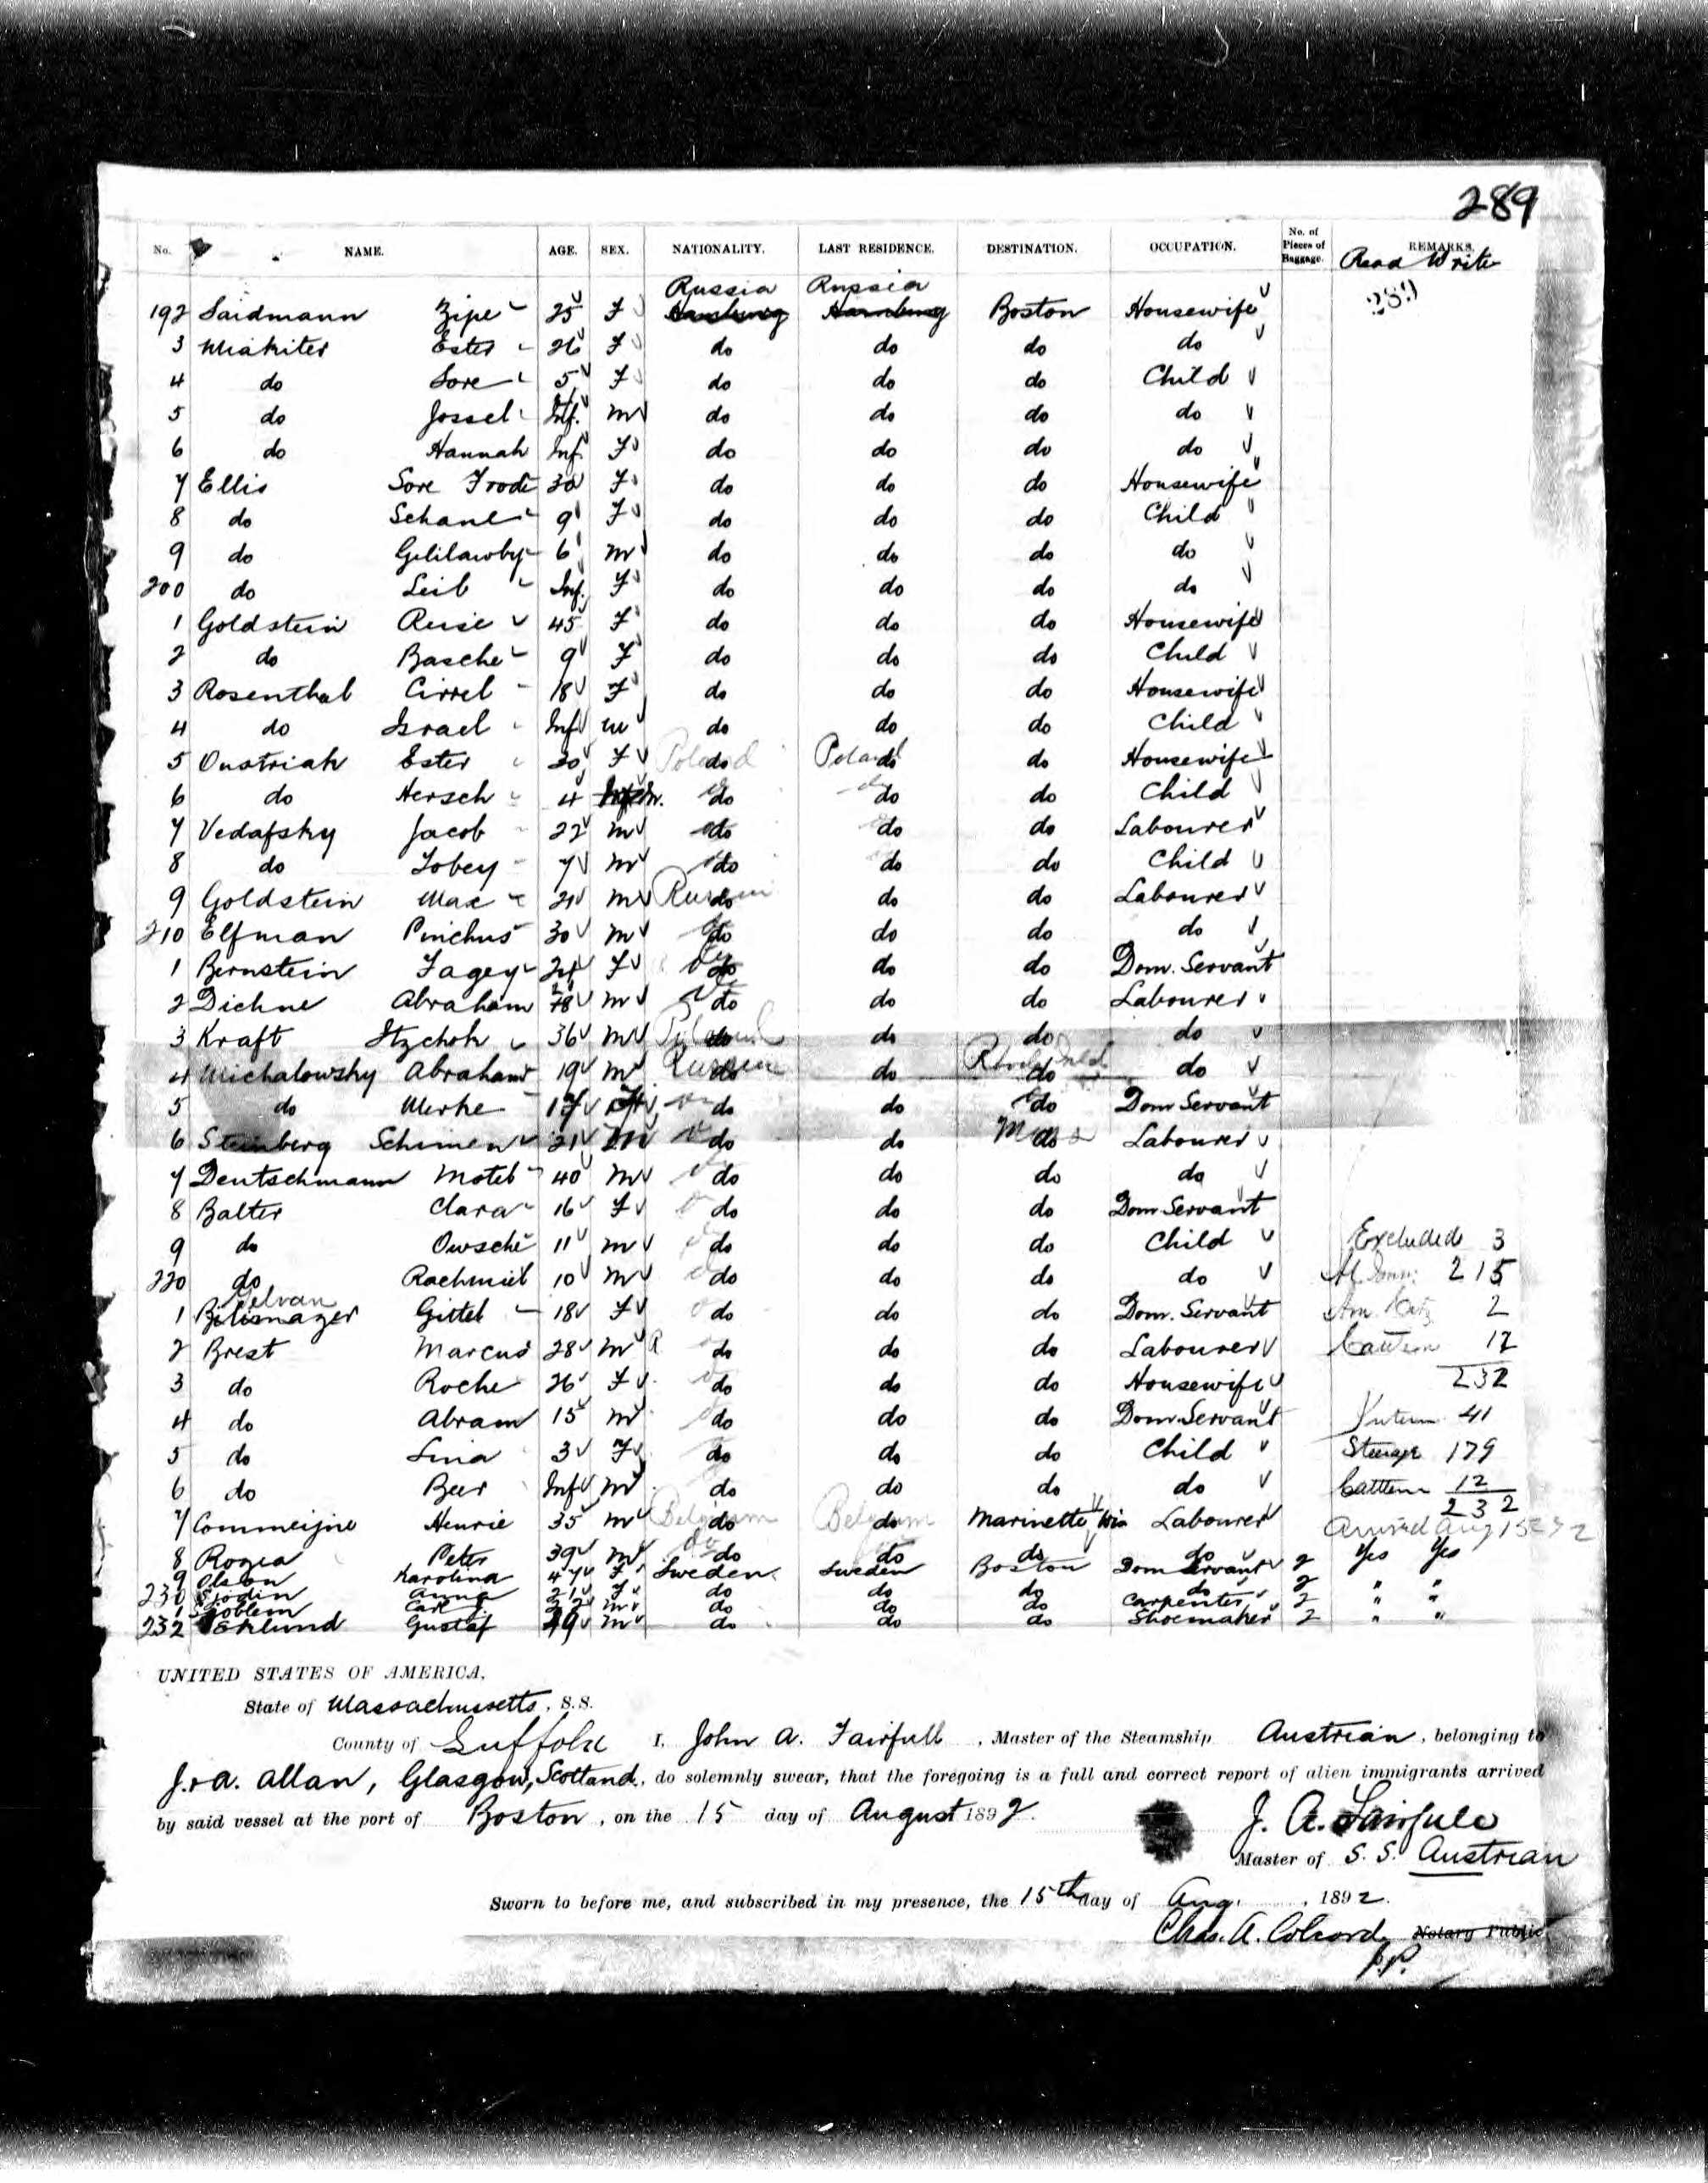 289
No. NAME. AGE. SEX. NATIONALITY. LAST RESIDENCE. DESTINATION. OCCUPATION. No. of Pieces of Baggage. REMARKS.
Read Write
Russia Russia
192 Saidmann Zipe 25 F Hamburg Hamburg Boston Housewife
3 Miakiter Ester 26 F do do do do
4 do Sore 5 F do do do Child
5 do Jossel Inf. M do do do do
6 do Hannah Inf. F do do do do
7 Ellis Sore Frode 30 F do do do Housewife
8 do Schane 9 F do do do Child
9 do 6 M do do do do
200 do Leib Inf. F do do do do
1 Goldstein Reise 45 F do do do Housewife
2 do Basche 9 F do do do Child
3 Rosenthal Cirrel 18 F do do do Housewife
4 do Israel Inf M do do do Child
5 Oustriah Ester 20 F Poland do Poland do do Housewife
6 do Hersch 4 M. do do do Child
7 Vedafsky Jacob 22 M do do do Labourer
8 do Tobey 7 M do do do Child
9 Goldstein Max 21 M Russia do do do Labourer
210 Elfman Pinchus 30 M do do do do
1 Bernstein Fagey F do do do Dom. Servant
2 Dichne Abraham M do do do Labourer
3 Kraft Itzchok 36 M Poland do do do do
4 Michalowsky Abraham 19 M Russia do do do do
5 do Merke 17 F do do do Dom Servant
6 Steinberg Schimen 21 M do do Mass do Labourer
7 Deutschmann Motel 40 M do do do do
8 Balter Clara 16 F do do do Dom Servant
9 do Owsche 11 M do do do Child Excluded 3
220 do Rachmiel 10 M do do do do 215
1 Gittel 18 F do do do Dom. Servant 2
2 Brest Marcus 28 M R do do do Labourer 12
3 do Roche 26 F do do do Housewife 232
4 do Abram 15 M do do do Dom Servant 41
5 do Lina 3 F do do do Child Steerage 179
6 do Beer Inf M do do do do Cattlemen 12
232
7 Commeijne Henrie 35 M Belgium do Belgium do Marinette Wis Labourer Arrived Aug 15
8 Rogea Peter 39 M do do do do Yes Yes
9 Olson Karolina 47 F Sweden Sweden Boston Dom Servant 2
230 Sjodin Anna 21 F do do do do 2 " "
1 Sjoblem Carl M do do do Carpenter 2 " "
232 Eklund Gustaf 29 M do do do Shoemaker 2 " "
UNITED STATES OF AMERICA,
State of Massachusetts, S.S.
County of Suffolk I, John A. Fairfull, Master of the Steamship Austrian, belonging to
J. & A. Allan, Glasgow, Scotland, do solemnly swear, that the foregoing is a full and correct report of alien immigrants arrived
by said vessel at the port of Boston, on the 15 day of August 1892.
J. A. Fairfull
Master of S. S. Austrian
Sworn to before me, and subscribed in my presence, the 15th day of Aug. , 1892.
Chas. A. Colcord, Notary Public
J.P.